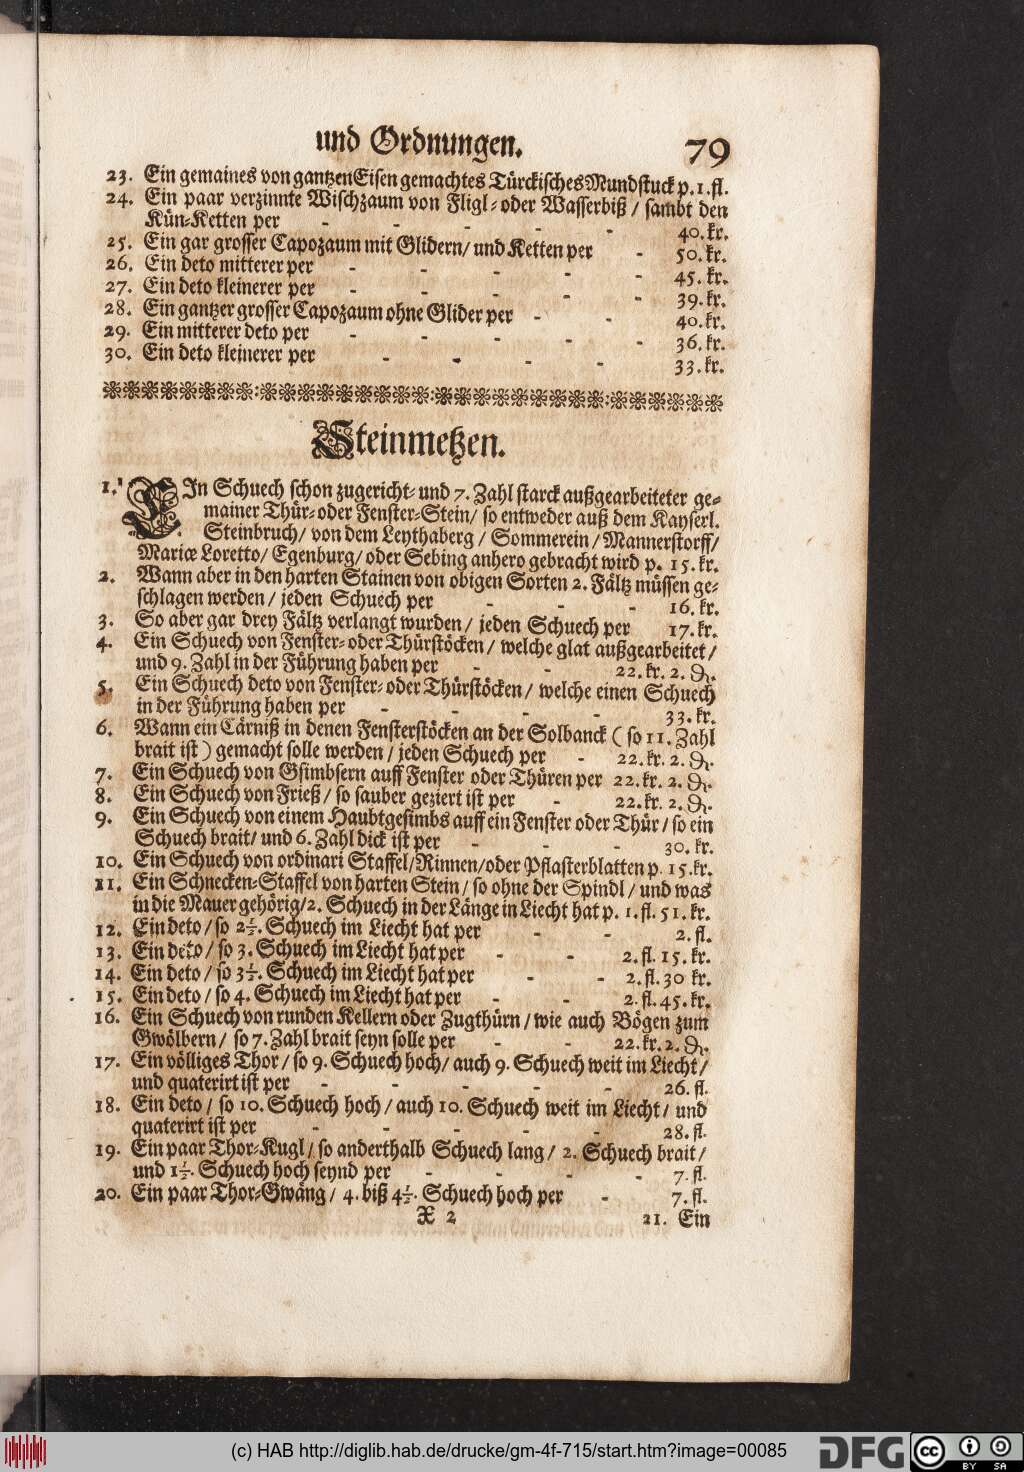 und Ordnungen. 79
23. Ein gemaines von gantzen Eisen gemachtes Türckisches Mundstuck p. 1. fl.
24. Ein paar verzinnte Wischzaum von Fligl- oder Wasserbiß / sambt den
Kün-Ketten per - - - - - 40. kr.
25. Ein gar grosser Capozaum mit Glidern / und Ketten per - 50. kr.
26. Ein deto mitterer per - - - - - 45. kr.
27. Ein deto kleinerer per - - - - - 39. kr.
28. Ein gantzer grosser Capozaum ohne Glider per - - 40. kr.
29. Ein mitterer deto per - - - - - 36. kr.
30. Ein deto kleinerer per - - - - 33. kr.
Steinmetzen.
1. EIn Schuech schon zugericht- und 7. Zahl starck außgearbeiteter ge-
mainer Thür- oder Fenster-Stein / so entweder auß dem Kayserl.
Steinbruch / von dem Leythaberg / Sommerein / Mannerstorff /
Mariæ Loretto / Egenburg / oder Sebing anhero gebracht wird p. 15. kr.
2. Wann aber in den harten Stainen von obigen Sorten 2. Fältz müssen ge-
schlagen werden / jeden Schuech per - - - 16. kr.
3. So aber gar drey Fältz verlangt wurden / jeden Schuech per 17. kr.
4. Ein Schuech von Fenster- oder Thürstöcken / welche glat außgearbeitet /
und 9. Zahl in der Führung haben per - - 22. kr. 2. ₰.
5. Ein Schuech deto von Fenster- oder Thürstöcken / welche einen Schuech
in der Führung haben per - - - - 33. kr.
6. Wann ein Cärniß in denen Fensterstöcken an der Solbanck ( so 11. Zahl
brait ist ) gemacht solle werden / jeden Schuech per - 22. kr. 2. ₰.
7. Ein Schuech von Gsimbsern auff Fenster oder Thüren per 22. kr. 2. ₰.
8. Ein Schuech von Frieß / so sauber geziert ist per - 22. kr. 2. ₰.
9. Ein Schuech von einem Haubtgesimbs auff ein Fenster oder Thür / so ein
Schuech brait / und 6. Zahl dick ist per - - - 30. kr.
10. Ein Schuech von ordinari Staffel / Rinnen / oder Pflasterblatten p. 15. kr.
11. Ein Schnecken-Staffel von harten Stein / so ohne der Spindl / und was
in die Mauer gehörig / 2. Schuech in der Länge in Liecht hat p. 1. fl. 51. kr.
12. Ein deto / so 2½. Schuech im Liecht hat per - - 2. fl.
13. Ein deto / so 3. Schuech im Liecht hat per - - 2. fl. 15. kr.
14. Ein deto / so 3½. Schuech im Liecht hat per - - 2. fl. 30 kr.
15. Ein deto / so 4. Schuech im Liecht hat per - - 2. fl. 45. kr.
16. Ein Schuech von runden Kellern oder Zugthürn / wie auch Bögen zum
Gwölbern / so 7. Zahl brait seyn solle per - - 22. kr. 2. ₰.
17. Ein völliges Thor / so 9. Schuech hoch / auch 9. Schuech weit im Liecht /
und quaterirt ist per - - - - - 26. fl.
18. Ein deto / so 10. Schuech hoch / auch 10. Schuech weit im Liecht / und
quaterirt ist per - - - - - 28. fl.
19. Ein paar Thor-Kugl / so anderthalb Schuech lang / 2. Schuech brait /
und 1½. Schuech hoch seynd per - - - - 7. fl.
20. Ein paar Thor-Gwäng / 4. biß 4½. Schuech hoch per - 7. fl.
X 2 21. Ein
(c) HAB http://diglib.hab.de/drucke/gm-4f-715/start.htm?image=00085
DFG
cc BY SA